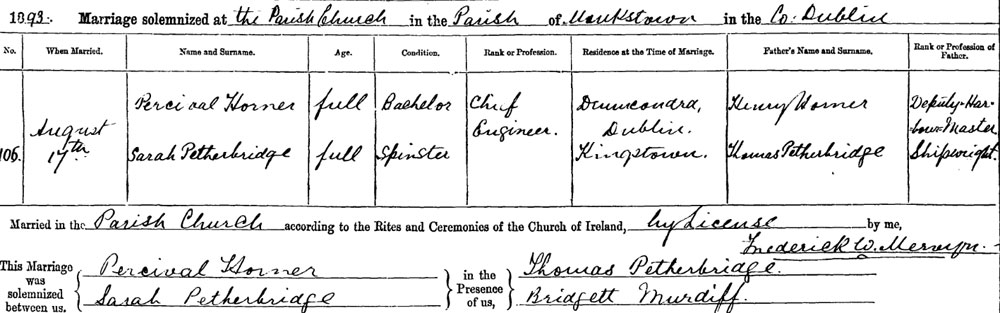 1893. Marriage solemnized at the Parish Church in the Parish of Monkstown in the Co: Dublin
No. When Married. Name and Surname. Age. Condition. Rank or Profession. Residence at the Time of Marriage. Father's Name and Surname. Rank or Profession of Father.
106. August 17th
Percival Horner full Bachelor Chief Engineer. Drumcondra, Dublin. Henry Horner Deputy-Har-bour-Master
Sarah Petherbridge full Spinster Kingstown. Thomas Petherbridge Shipwright.
Married in the Parish Church according to the Rites and Ceremonies of the Church of Ireland, by License by me,
Frederick W. Mervyn
This Marriage was solemnized between us, Percival Horner in the Presence of us, Thomas Petherbridge.
Sarah Petherbridge Bridgett Murdiff.